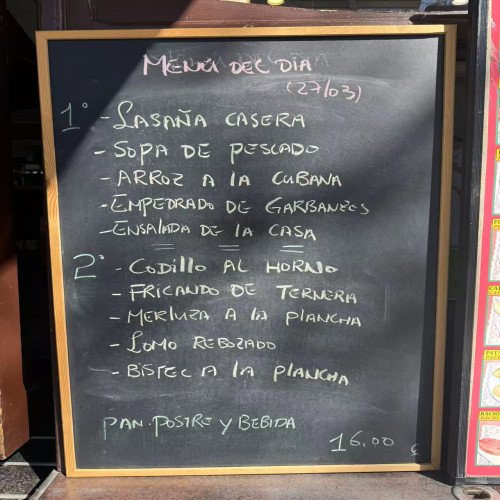 MENÚ DEL DIA
(27/03)
1º - LASAÑA CASERA
- SOPA DE PESCADO
- ARROZ A LA CUBANA
- EMPEDRADO DE GARBANZOS
- ENSALADA DE LA CASA
2º - CODILLO AL HORNO
- FRICANDO DE TERNERA
- MERLUZA A LA PLANCHA
- LOMO REBOZADO
- BISTEC A LA PLANCHA
PAN. POSTRE Y BEBIDA
16.00 €